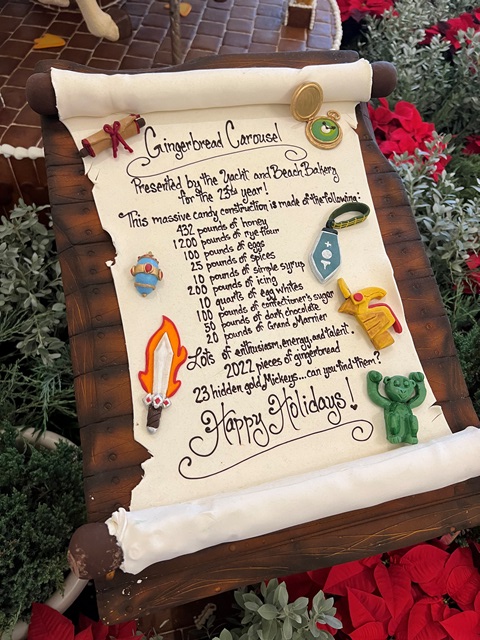 Gingerbread Carousel
Presented by the Yacht and Beach Bakery
for the 23rd year!
This massive candy construction is made of the following:
432 pounds of honey
1200 pounds of rye flour
100 pounds of eggs
25 pounds of spices
10 pounds of simple syrup
200 pounds of icing
10 quarts of egg whites
100 pounds of confectioner's sugar
50 pounds of dark chocolate
20 pounds of Grand Marnier
Lots of enthusiasm, energy, and talent.
2022 pieces of gingerbread
23 hidden gold Mickeys...can you find them?
Happy Holidays!